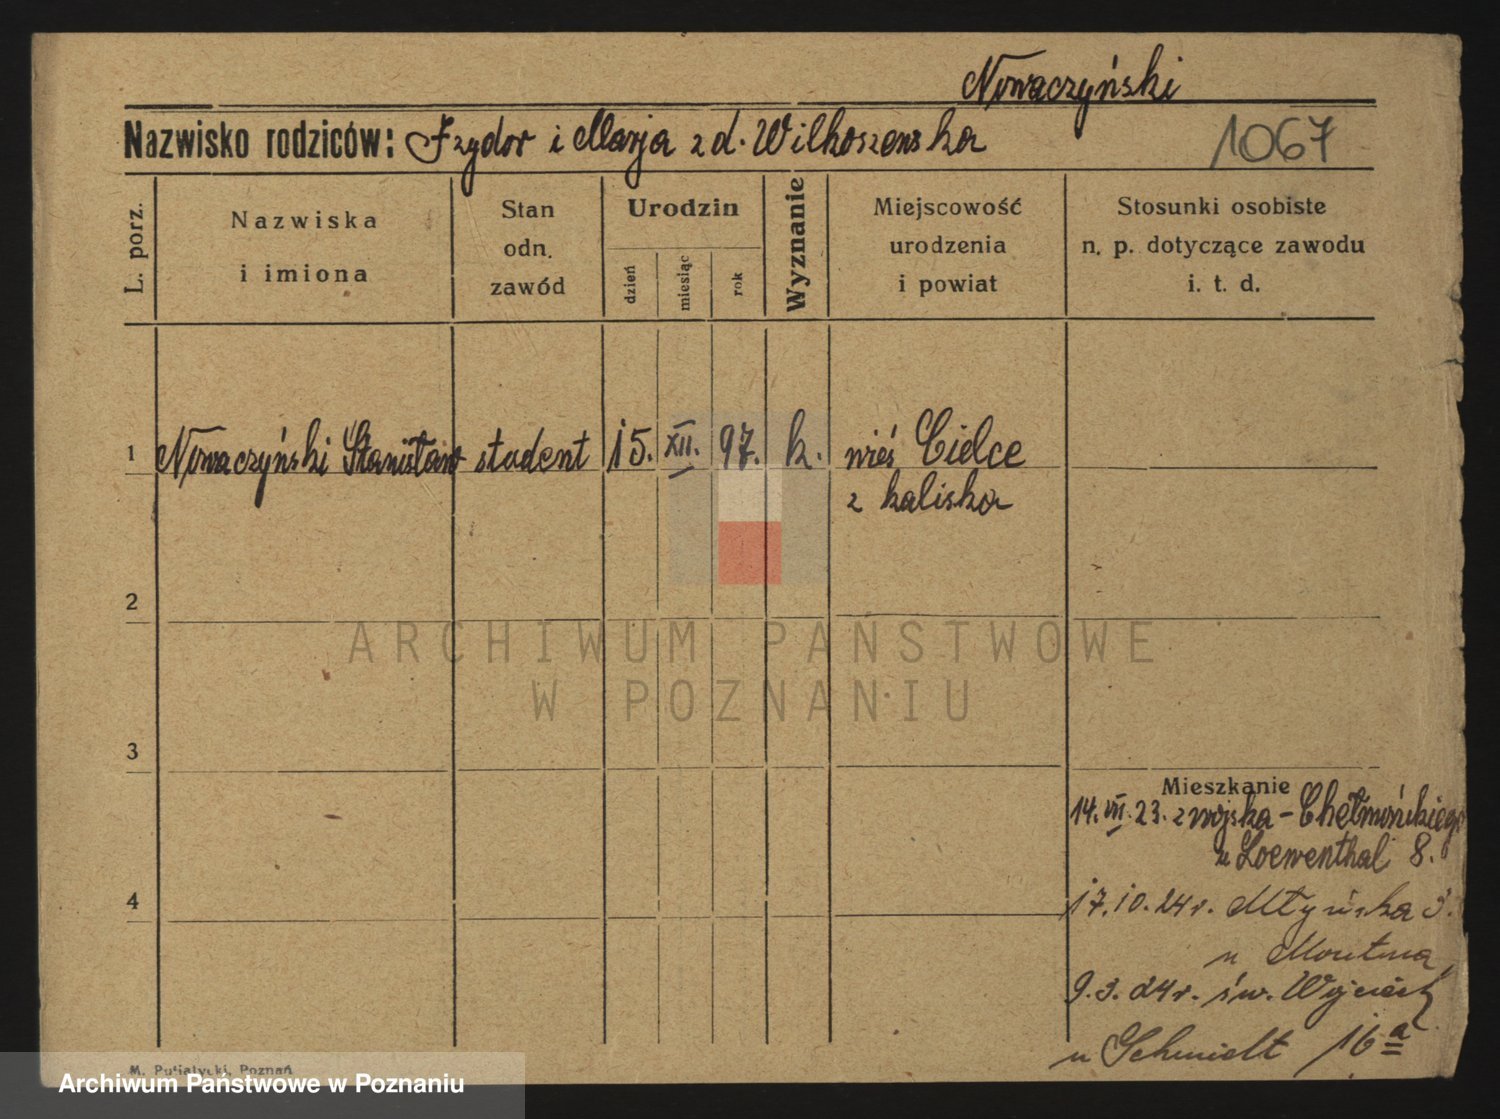 Nowaczyński
Nazwisko rodziców: Izydor i Marja z d. Wilkoszewska
1067
L. porz.
Nazwiska
i imiona
Stan
odn.
zawód
Urodzin
dzień
miesiąc
rok
Wyznanie
Miejscowość
urodzenia
i powiat
Stosunki osobiste
n. p. dotyczące zawodu
i. t. d.
1 Nowaczyński Stanisław student 15. XII. 97. k. wieś Cielce
z kaliska
2
ARCHIWUM PAŃSTWOWE
W POZNANIU
3
Mieszkanie
14. VII. 23. z wojska - Chełmońskiego
u Loewenthal 8.
4
17.10.24 r. Młyńska 3.
u
9.3.24 r. św. Wojciech
u Schmidt 16 a
M. Putiatycki, Poznań
Archiwum Państwowe w Poznaniu